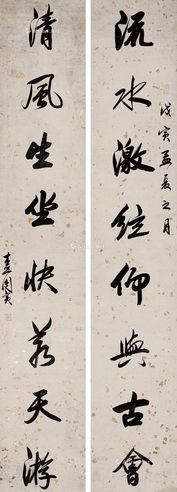 流水激絃仰與古會
戊寅孟夏之月
清風生坐快若天游